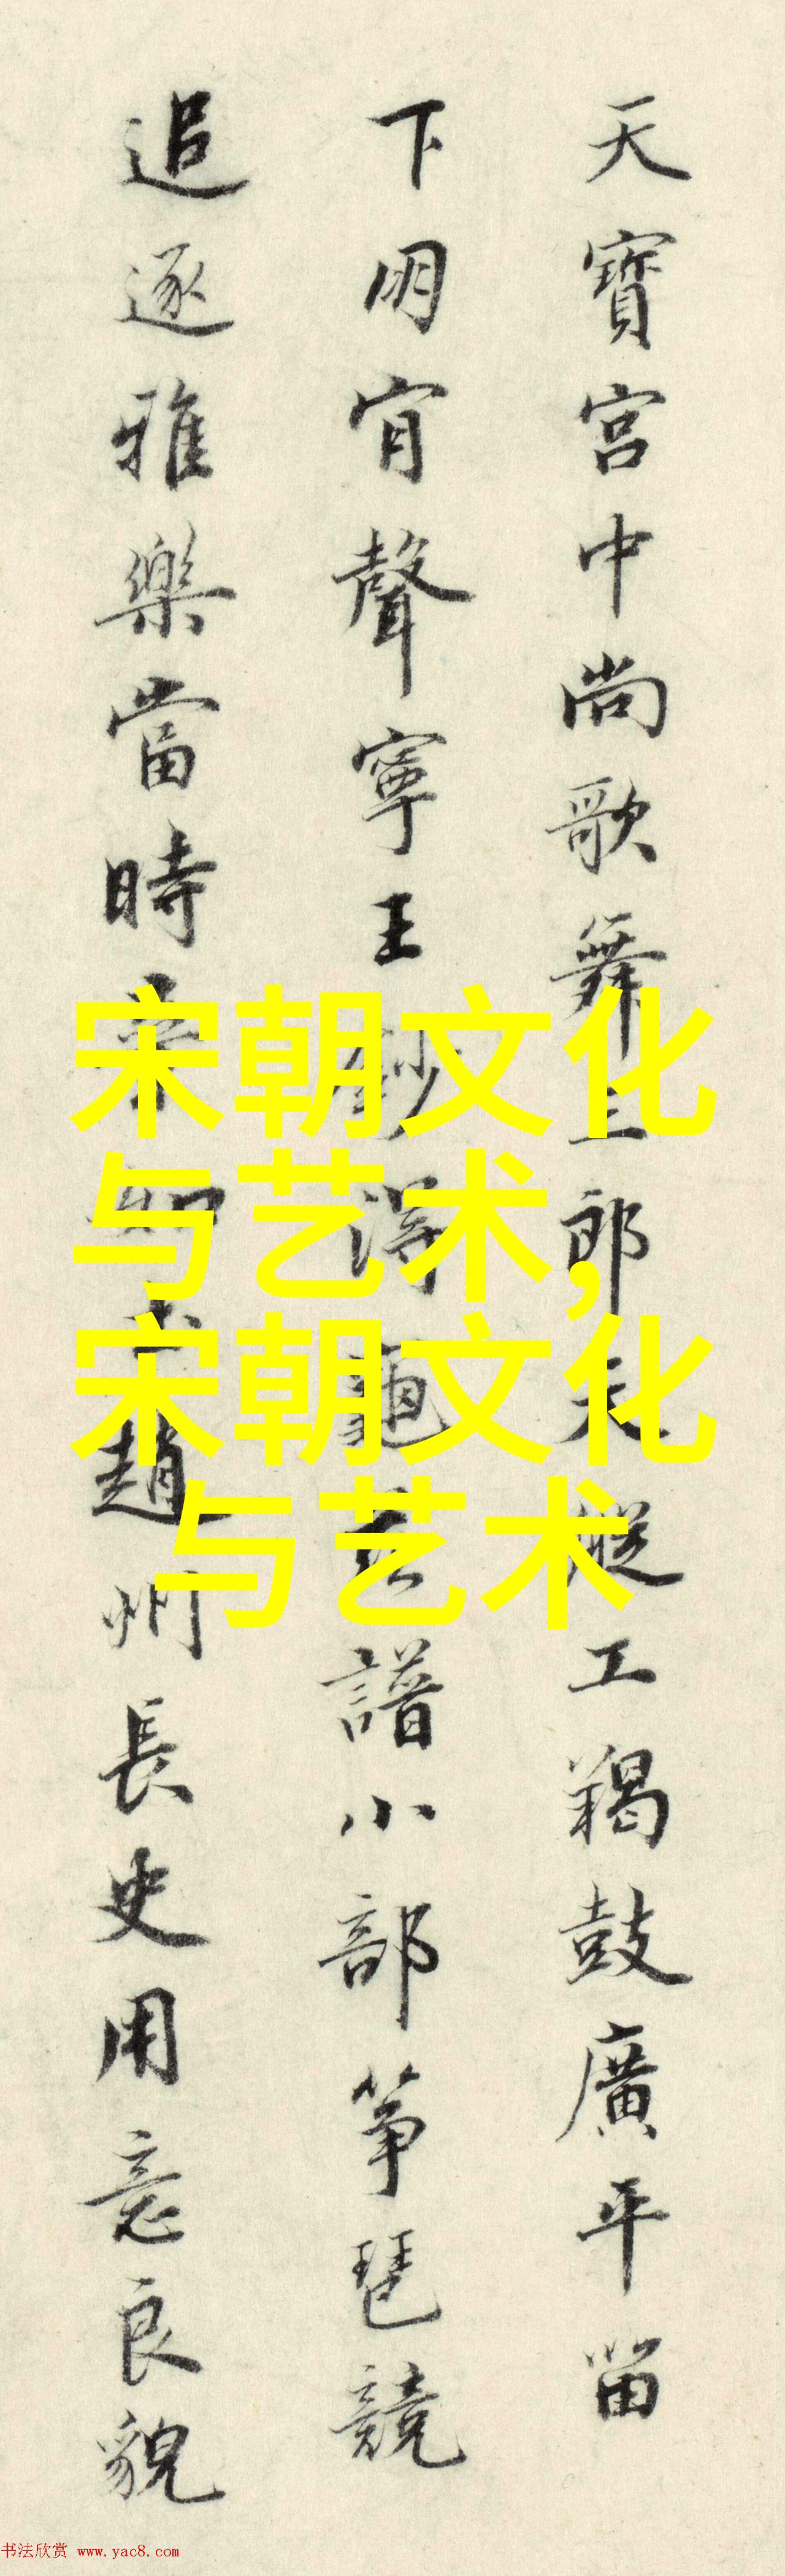 天寶宮中尚歌舞三郎天縱工羯鼓廣平留
下朋肎聲寧王鈔得龜茲譜小部箏琶競
追逐雅樂當時棄如土趙州長史用意良貌
宋朝文化
与艺术,
宋朝文化
与艺术
书法欣赏 www.yac8.com